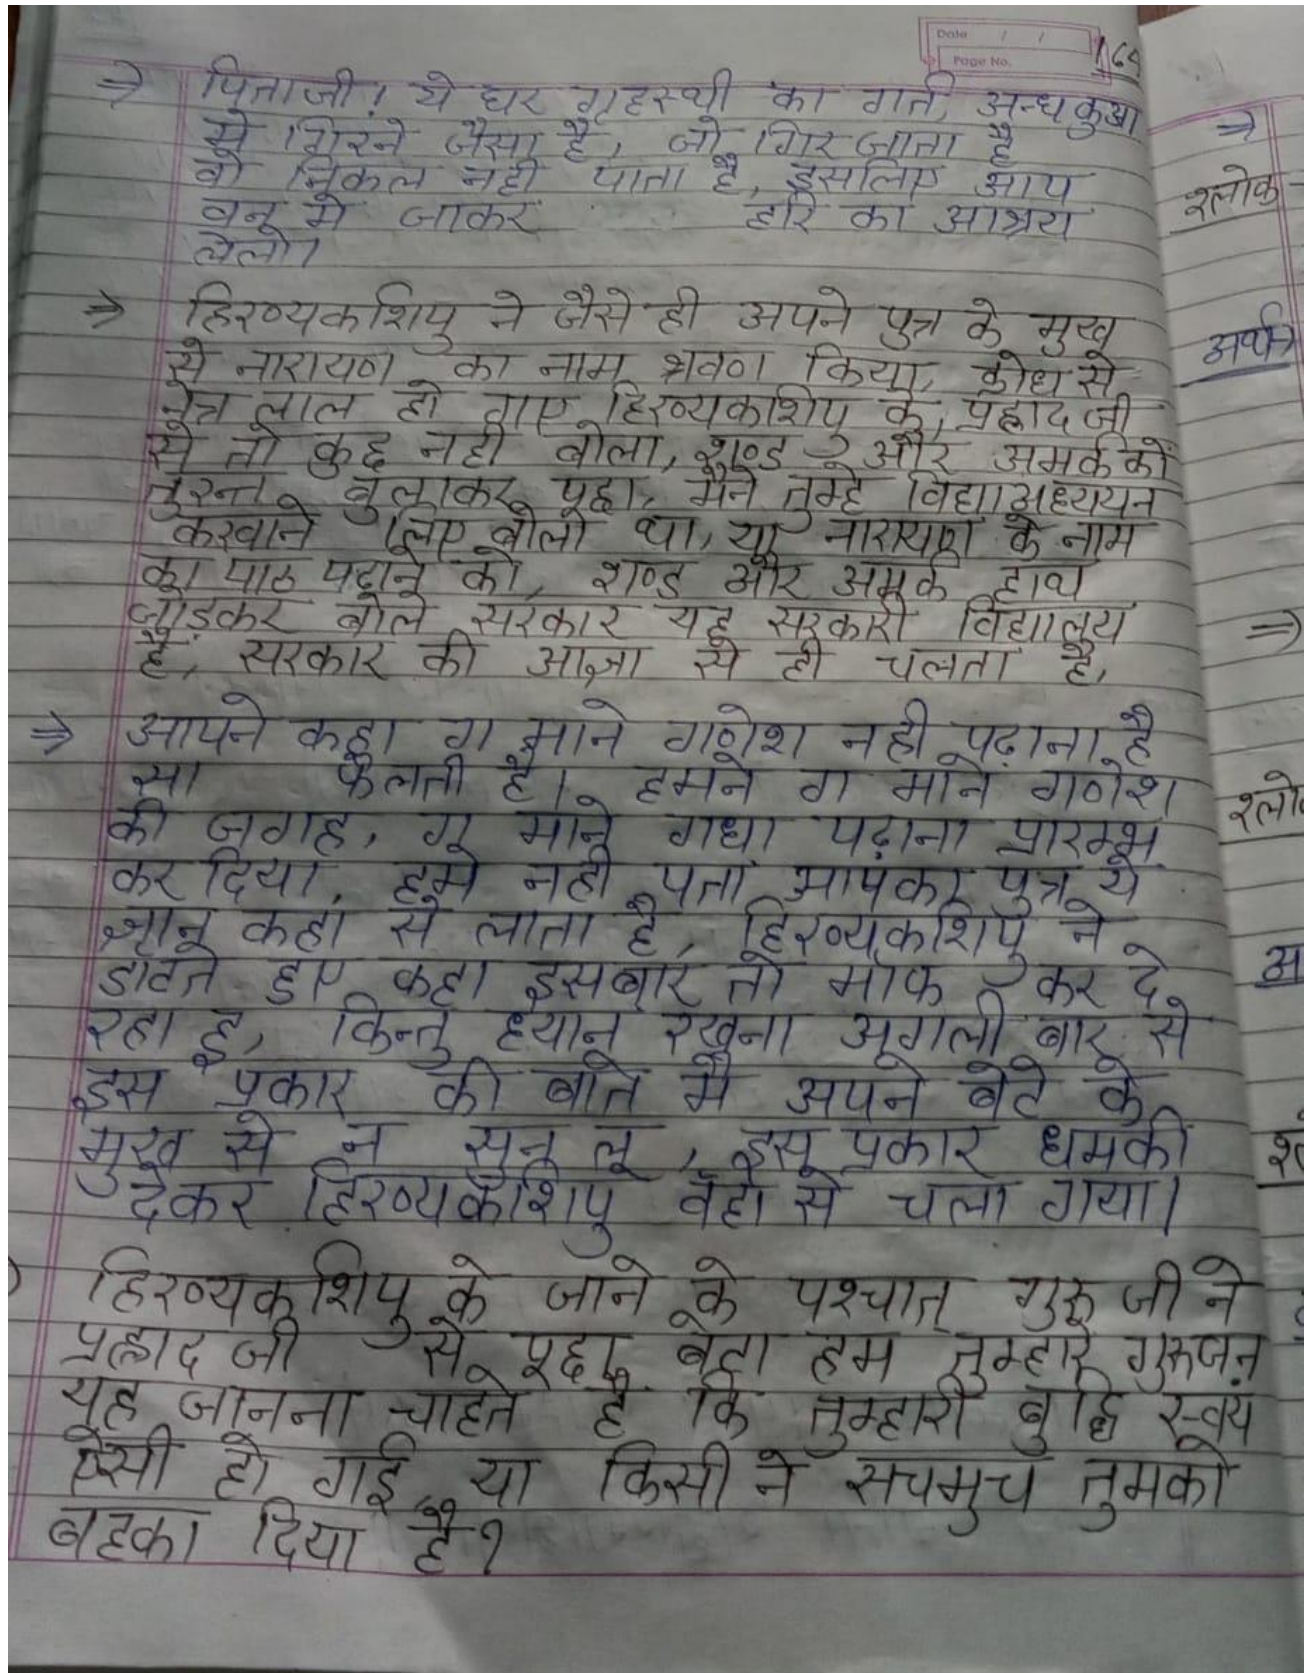 Date / /
Page No.
164
⇒ पिताजी! ये घर गृहस्थी का गर्त, अन्धकुआ
मे गिरने जैसा है, जो गिर जाता है
वो निकल नही पाता है, इसलिए आप
वन मे जाकर हरि का आश्रय
लेलो।
⇒ हिरण्यकशिपु ने जैसे ही अपने पुत्र के मुख
से नारायण का नाम श्रवण किया, क्रोध से
नेत्र लाल हो गए हिरण्यकशिपु के, प्रह्लाद जी
से तो कुछ नही बोला, शण्ड और अमर्क को
तुरन्त बुलाकर पूछा, मैने तुम्हे विद्याअध्ययन
करवाने लिए बोला था, या नारायण के नाम
का पाठ पढाने को, शण्ड और अमर्क हाथ
जोड़कर बोले सरकार यह सरकारी विद्यालय
है, सरकार की आज्ञा से ही चलता है,
⇒ आपने कहा ग माने गणेश नही पढ़ाना है
सा फैलती है। हमने ग माने गणेश
की जगह, ग माने गधा पढ़ाना प्रारम्भ
कर दिया, हमे नही पता आपका पुत्र ये
ज्ञान कहां से लाता है, हिरण्यकशिपु ने
डाटते हुए कहा इसबार तो माफ कर दे
रहा हू, किन्तु ध्यान रखना अगली बार से
इस प्रकार की बाते मै अपने बेटे के
मुख से न सुन लू, इस प्रकार धमकी
देकर हिरण्यकशिपु वहाँ से चला गया।
हिरण्यकशिपु के जाने के पश्चात् गुरु जी ने
प्रह्लाद जी से पूछा बेटा हम तुम्हारे गुरुजन
यह जानना चाहते है कि तुम्हारी बुद्धि स्वयं
ऐसी हो गई, या किसी ने सचमुच तुमको
बहका दिया है?
⇒
श्लोक
अर्थ→
⇒
श्लो
अ